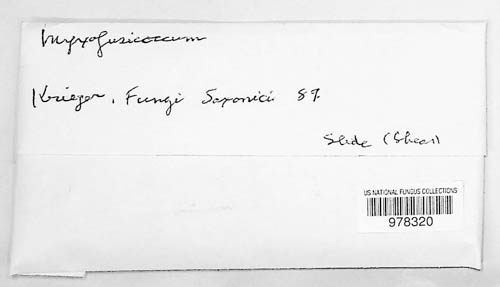 Myxofusicoccum
Krieger, Fungi Saxonici 89.
Slide (Shear)
US NATIONAL FUNGUS COLLECTIONS
978320